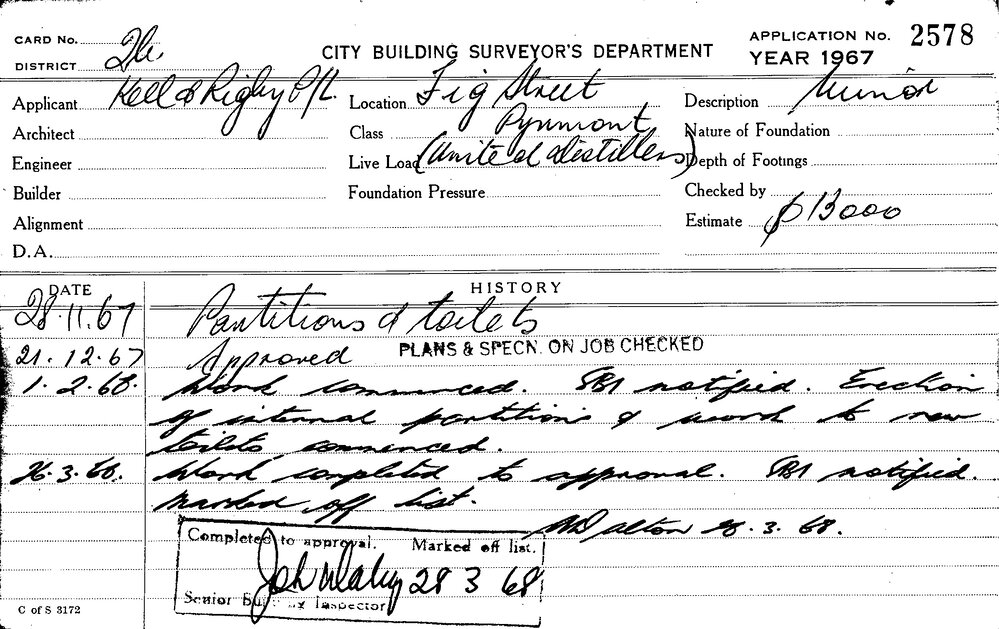 CARD No.
DISTRICT
CITY BUILDING SURVEYOR'S DEPARTMENT
APPLICATION No. 2578
YEAR 1967
Applicant Kell & Rigby P/L.
Location Fig Street
Description Minor
Architect
Class Pyrmont
Nature of Foundation
Engineer
Live Load (United Distillers)
Depth of Footings
Builder
Foundation Pressure
Checked by
Alignment
Estimate $13000
D.A.
DATE
HISTORY
28.11.67 Partitions & toilets
21.12.67 Approved PLANS & SPECN. ON JOB CHECKED
1.2.68. Work commenced. SBI notified. Erection
of internal partitions & work to new
toilets commenced.
26.3.68. Work completed to approval. SBI notified.
Marked off list.
Dalton 28.3.68.
Completed to approval. Marked off list.
28 3 68
Senior Building Inspector
C of S 3172